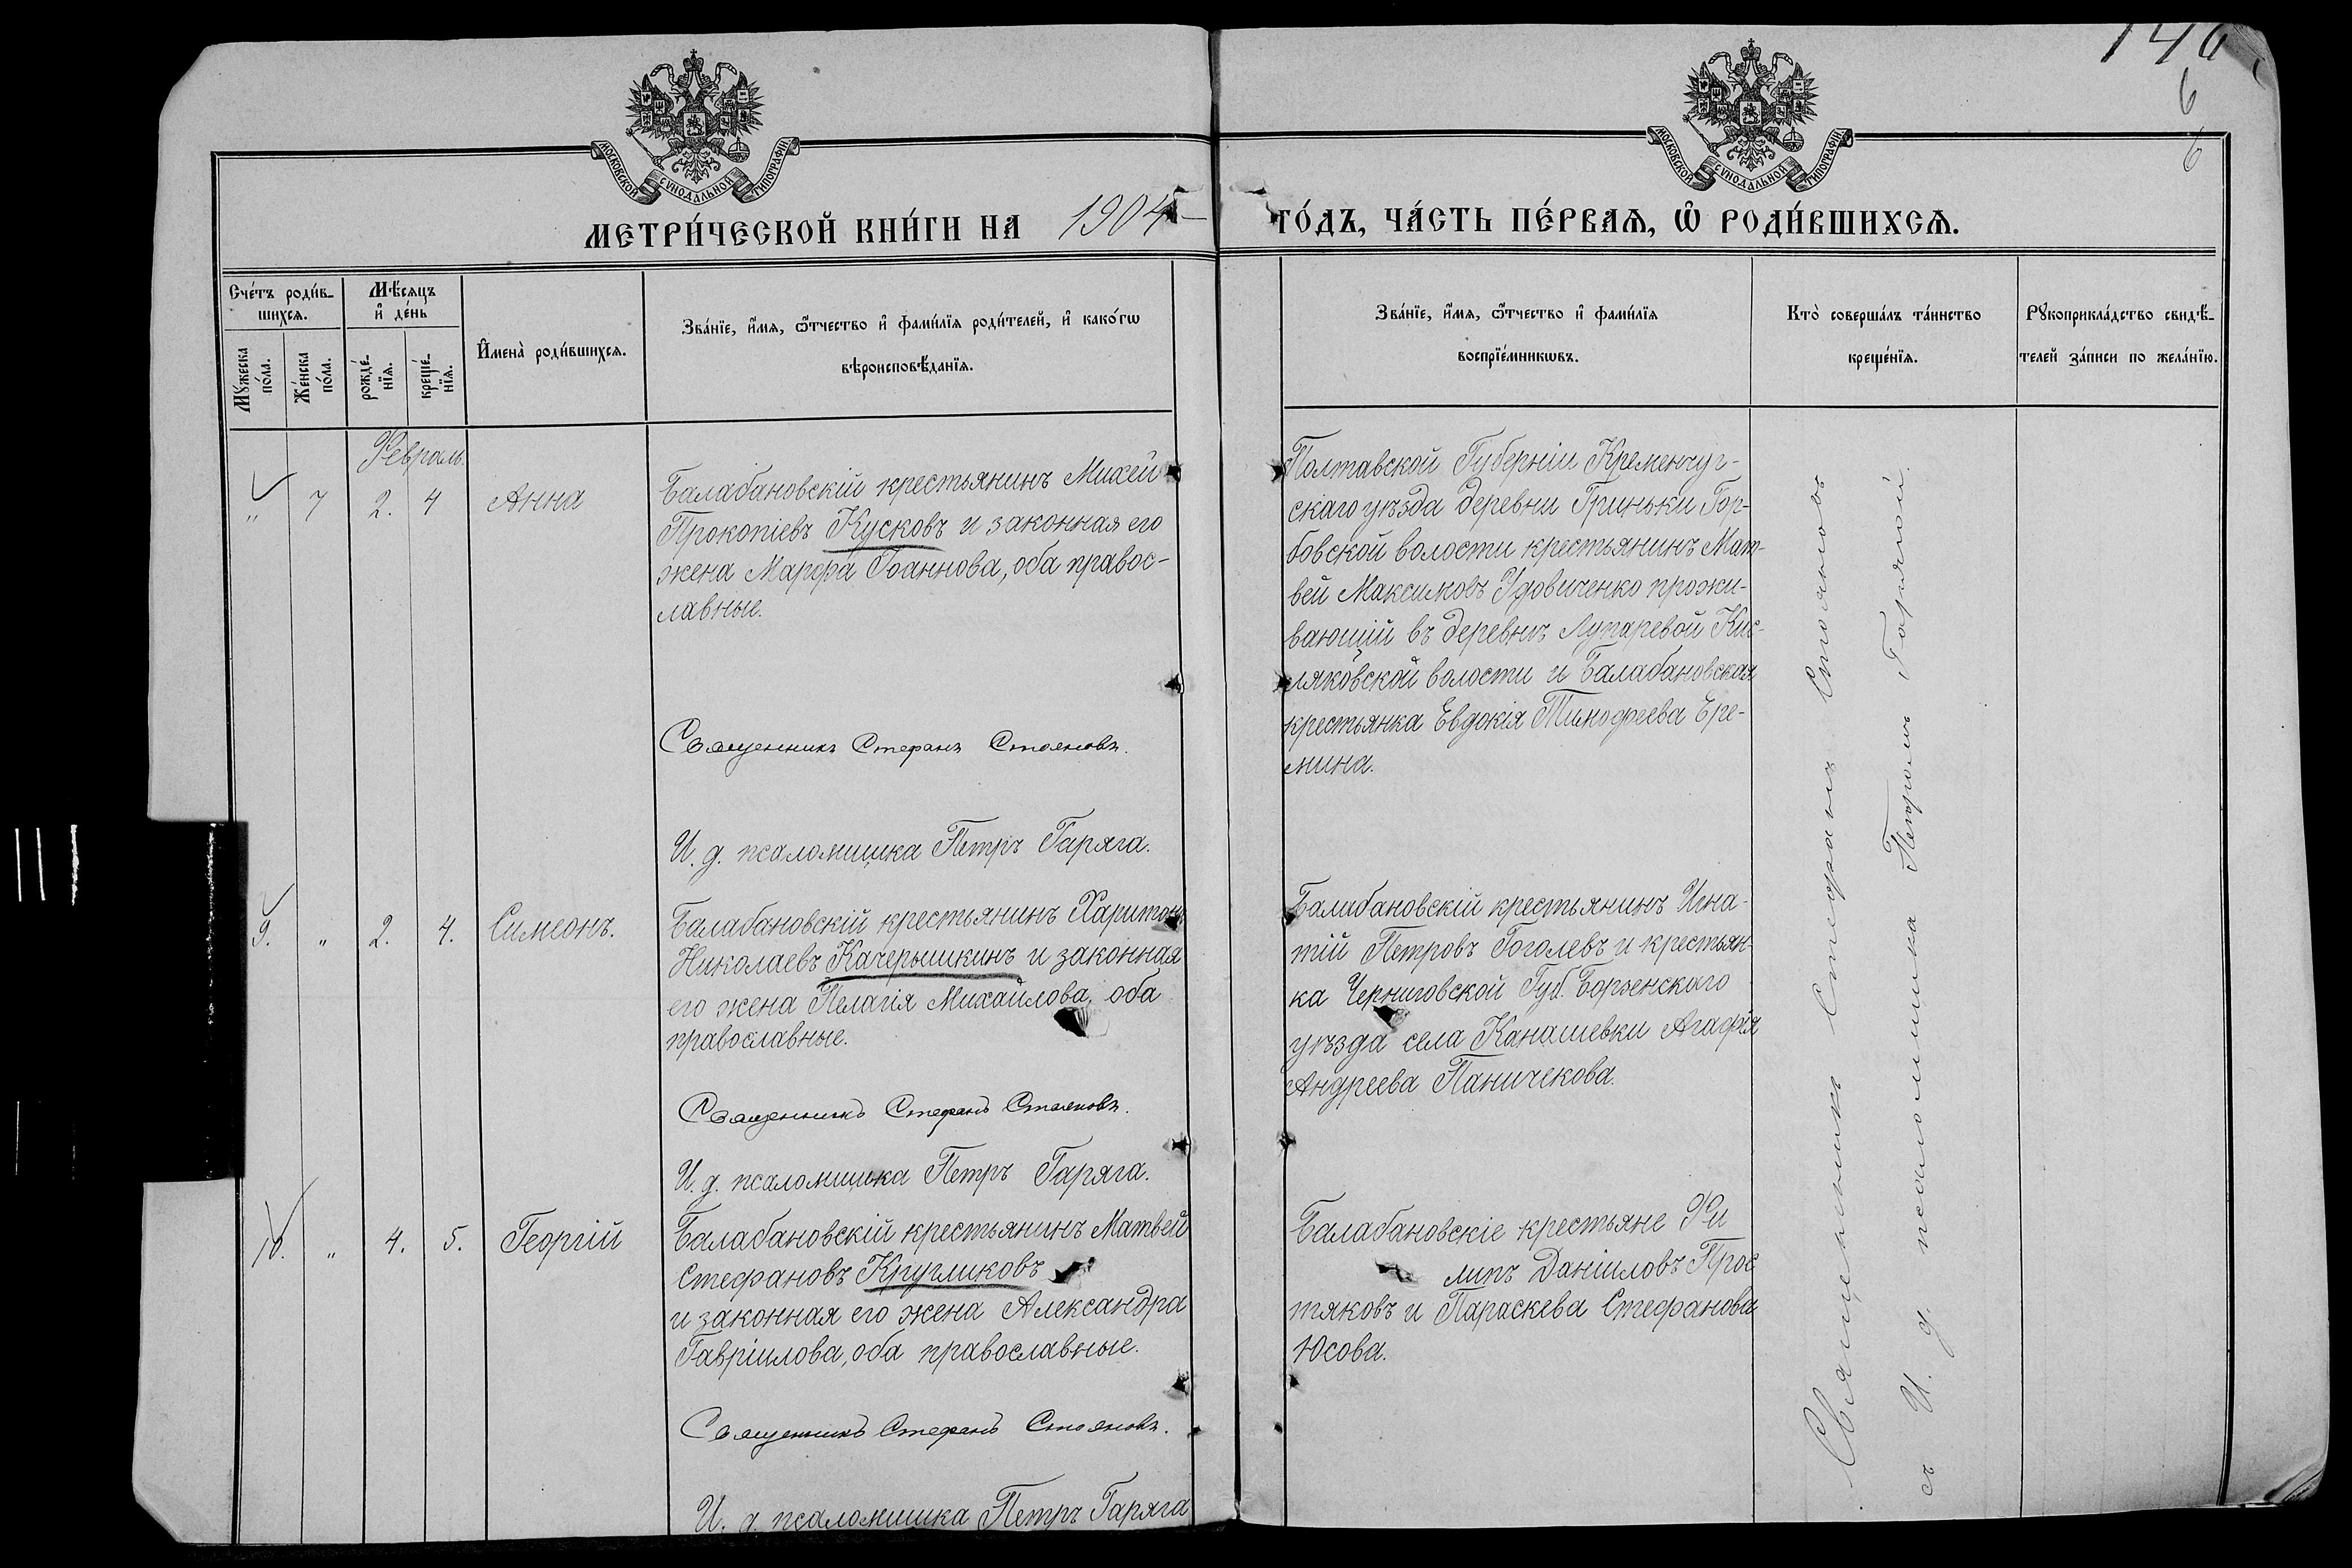 146
6
6
МОСКОВСКОЙ СѴНОДАЛЬНОЙ ТИПОГРАФІИ
МОСКОВСКОЙ СѴНОДАЛЬНОЙ ТИПОГРАФІИ
МЕТРИ́ЧЕСКОЙ КНИ́ГИ НА 1904 ГО́ДЪ, ЧА́СТЬ ПЕ́РВАѦ, Ѡ҆ РОДИ́ВШИХСѦ.
Сче́тъ роди́в-
шихсѧ.
Мꙋ́жеска
по́ла.
Же́нска
по́ла.
Мѣ́сѧцъ
и҆ де́нь
рожде́-
нїѧ.
креще́-
нїѧ.
И҆мена̀ роди́вшихсѧ.
Зва́нїе, и҆́мѧ, ѻ҆́тчество и҆ фами́лїѧ роди́телей, и҆ како́гѡ
вѣроисповѣ́данїѧ.
Зва́нїе, и҆́мѧ, ѻ҆́тчество и҆ фами́лїѧ
воспрїе́мникѡвъ.
Кто̀ соверша́лъ та́инство
креще́нїѧ.
Рꙋкоприкла́дство свидѣ́-
телей за́писи по жела́нїю.
Февраль.
„ 7 2. 4 Анна
Балабановскій крестьянинъ Михей
Прокопіевъ Кусковъ и законная его
жена Марфа Іоаннова, оба правос-
лавные.
Священникъ Стефанъ Стояновъ.
И. д. псаломщика Петръ Гаряга.
Полтавской Губерніи Кременчуг-
скаго уѣзда деревни Гриньки Гор-
бовской волости крестьянинъ Мат-
вей Максимовъ Удовиченко прожи-
вающій въ деревнѣ Лупаревой Кис-
ляковской волости и Балабановская
крестьянка Евдокія Тимофеева Ере-
мина.
9. „ 2. 4. Симеонъ.
Балабановскій крестьянинъ Харитонъ
Николаевъ Качерышкинъ и законная
его жена Пелагія Михайлова, оба
православные.
Священникъ Стефанъ Стояновъ.
И. д. псаломщика Петръ Гаряга.
Балабановскій крестьянинъ Игна-
тій Петровъ Гоголевъ и крестьян-
ка Черниговской Губ. Борзенскаго
уѣзда села Каношевки Агафія
Андреева Паничекова.
10. „ 4. 5. Георгій
Балабановскій крестьянинъ Матвей
Стефановъ Кругликовъ
и законная его жена Александра
Гавріилова, оба православные.
Священникъ Стефанъ Стояновъ.
И. д. псаломщика Петръ Гаряга
Балабановскіе крестьяне Фи
липъ Даніиловъ Прос
тяковъ и Параскева Стефанова
Юсова.
Священникъ Стефанъ Стояновъ
съ И. д. псаломщика Петромъ Гарягой.